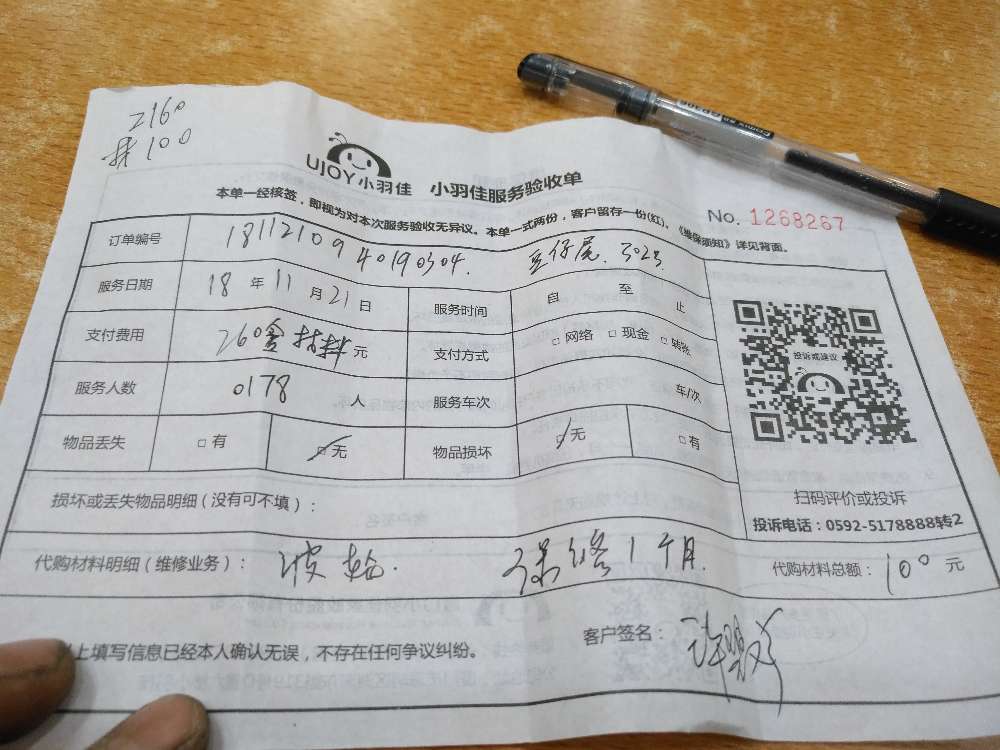 UJOY小羽佳 小羽佳服务验收单
本单一经核签，即视为对本次服务验收无异议。本单一式两份，客户留存一份(红)。《维保须知》详见背面。
No. 1268267
订单编号 1811210940190304. 豆仔尾. 3023
服务日期 18 年 11 月 21 日 服务时间 自 至 止
支付费用 260含材料 元 支付方式 □ 网络 □ 现金 □ 转账
服务人数 0178 人 服务车次 车/次
物品丢失 □ 有 □ 无 物品损坏 □ 无 □ 有
投诉或建议
扫码评价或投诉
投诉电话：0592-5178888转2
损坏或丢失物品明细（没有可不填）：
代购材料明细（维修业务）： 皮轮. 保修1个月. 代购材料总额：100 元
上填写信息已经本人确认无误，不存在任何争议纠纷。 客户签名：